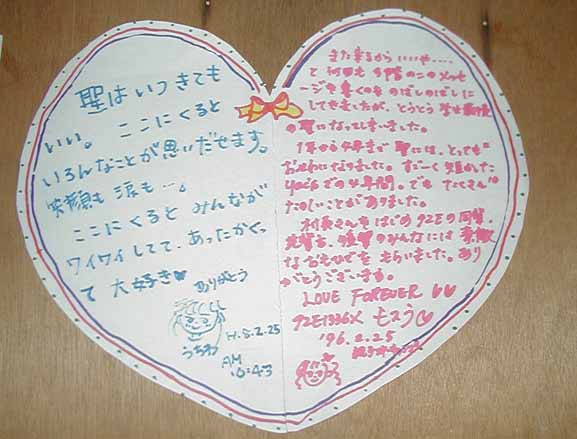 聖はいつきても
いい。ここにくると
いろんなことが思いだせます。
笑顔も 涙も…。
ここにくると みんなが
ワイワイしてて、あったかくっ
て 大好き♥
ありがとう
うちわ
H.8.2.25
AM
また来るから いいや……
と 何回も このメッセ
ージを書くのを のばしのばしに
してきましたが、とうとう
の になってしまいました。
1年から4年まで 聖には、とっても
おせわになりました。すごーく 短かった
4年間。でも たくさん
たのしいことが ありました。
村長さんをはじめ 92Eの同輩、
先輩方、後輩のみんなには 素敵
な おもいでを もらいました。あり
がとうございます。
LOVE FOREVER ♡♡
92E1326X
'96.2.25